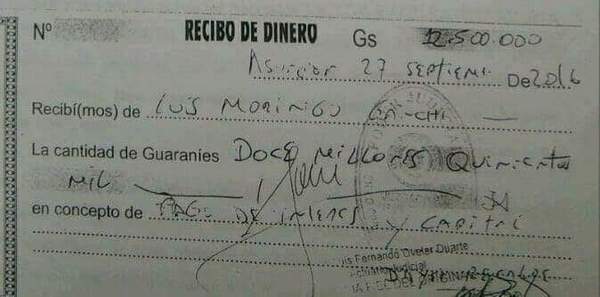 Nº RECIBO DE DINERO Gs 12.500.000
Asuncion 27 septiem De 2016
Recibí(mos) de Luis Morinigo
La cantidad de Guaraníes Doce millones Quinientos
mil
en concepto de Pago de interes y capital
is Fernando Oveler Duarte
Judicial